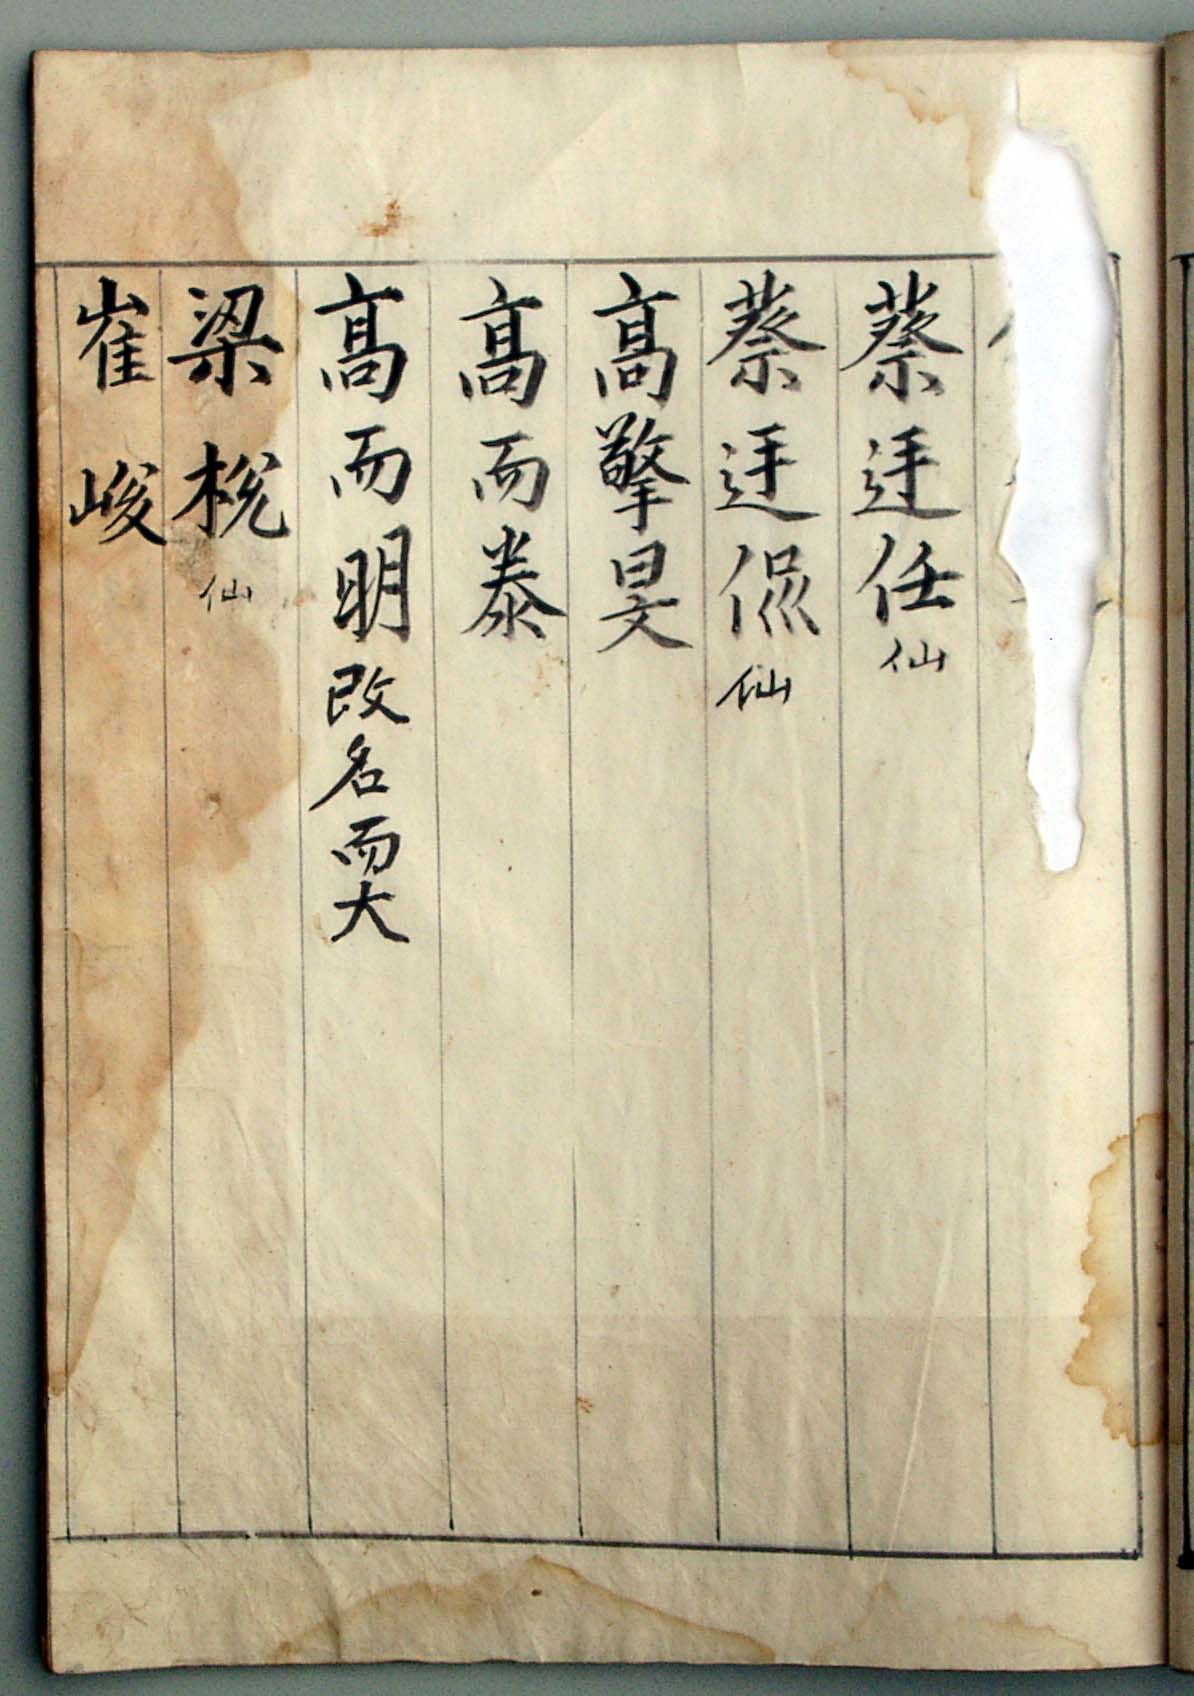 蔡廷任仙
蔡廷侃仙
高擎旻
高而泰
高而明改名而大
梁梲仙
崔峻